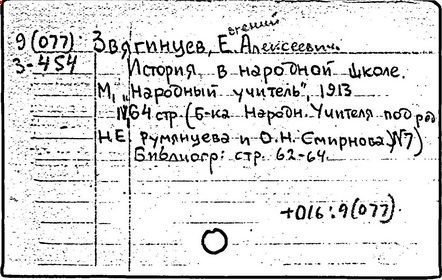 9(077) Звягинцев, Евгений Алексеевич.
З-454 История в народной школе.
М, "Народный учитель", 1913
64 стр. (Б-ка Народн. Учителя под ред
Н.Е. Румянцева и О.Н. Смирнова №7)
Библиогр: стр. 62-64.
+016:9(077).